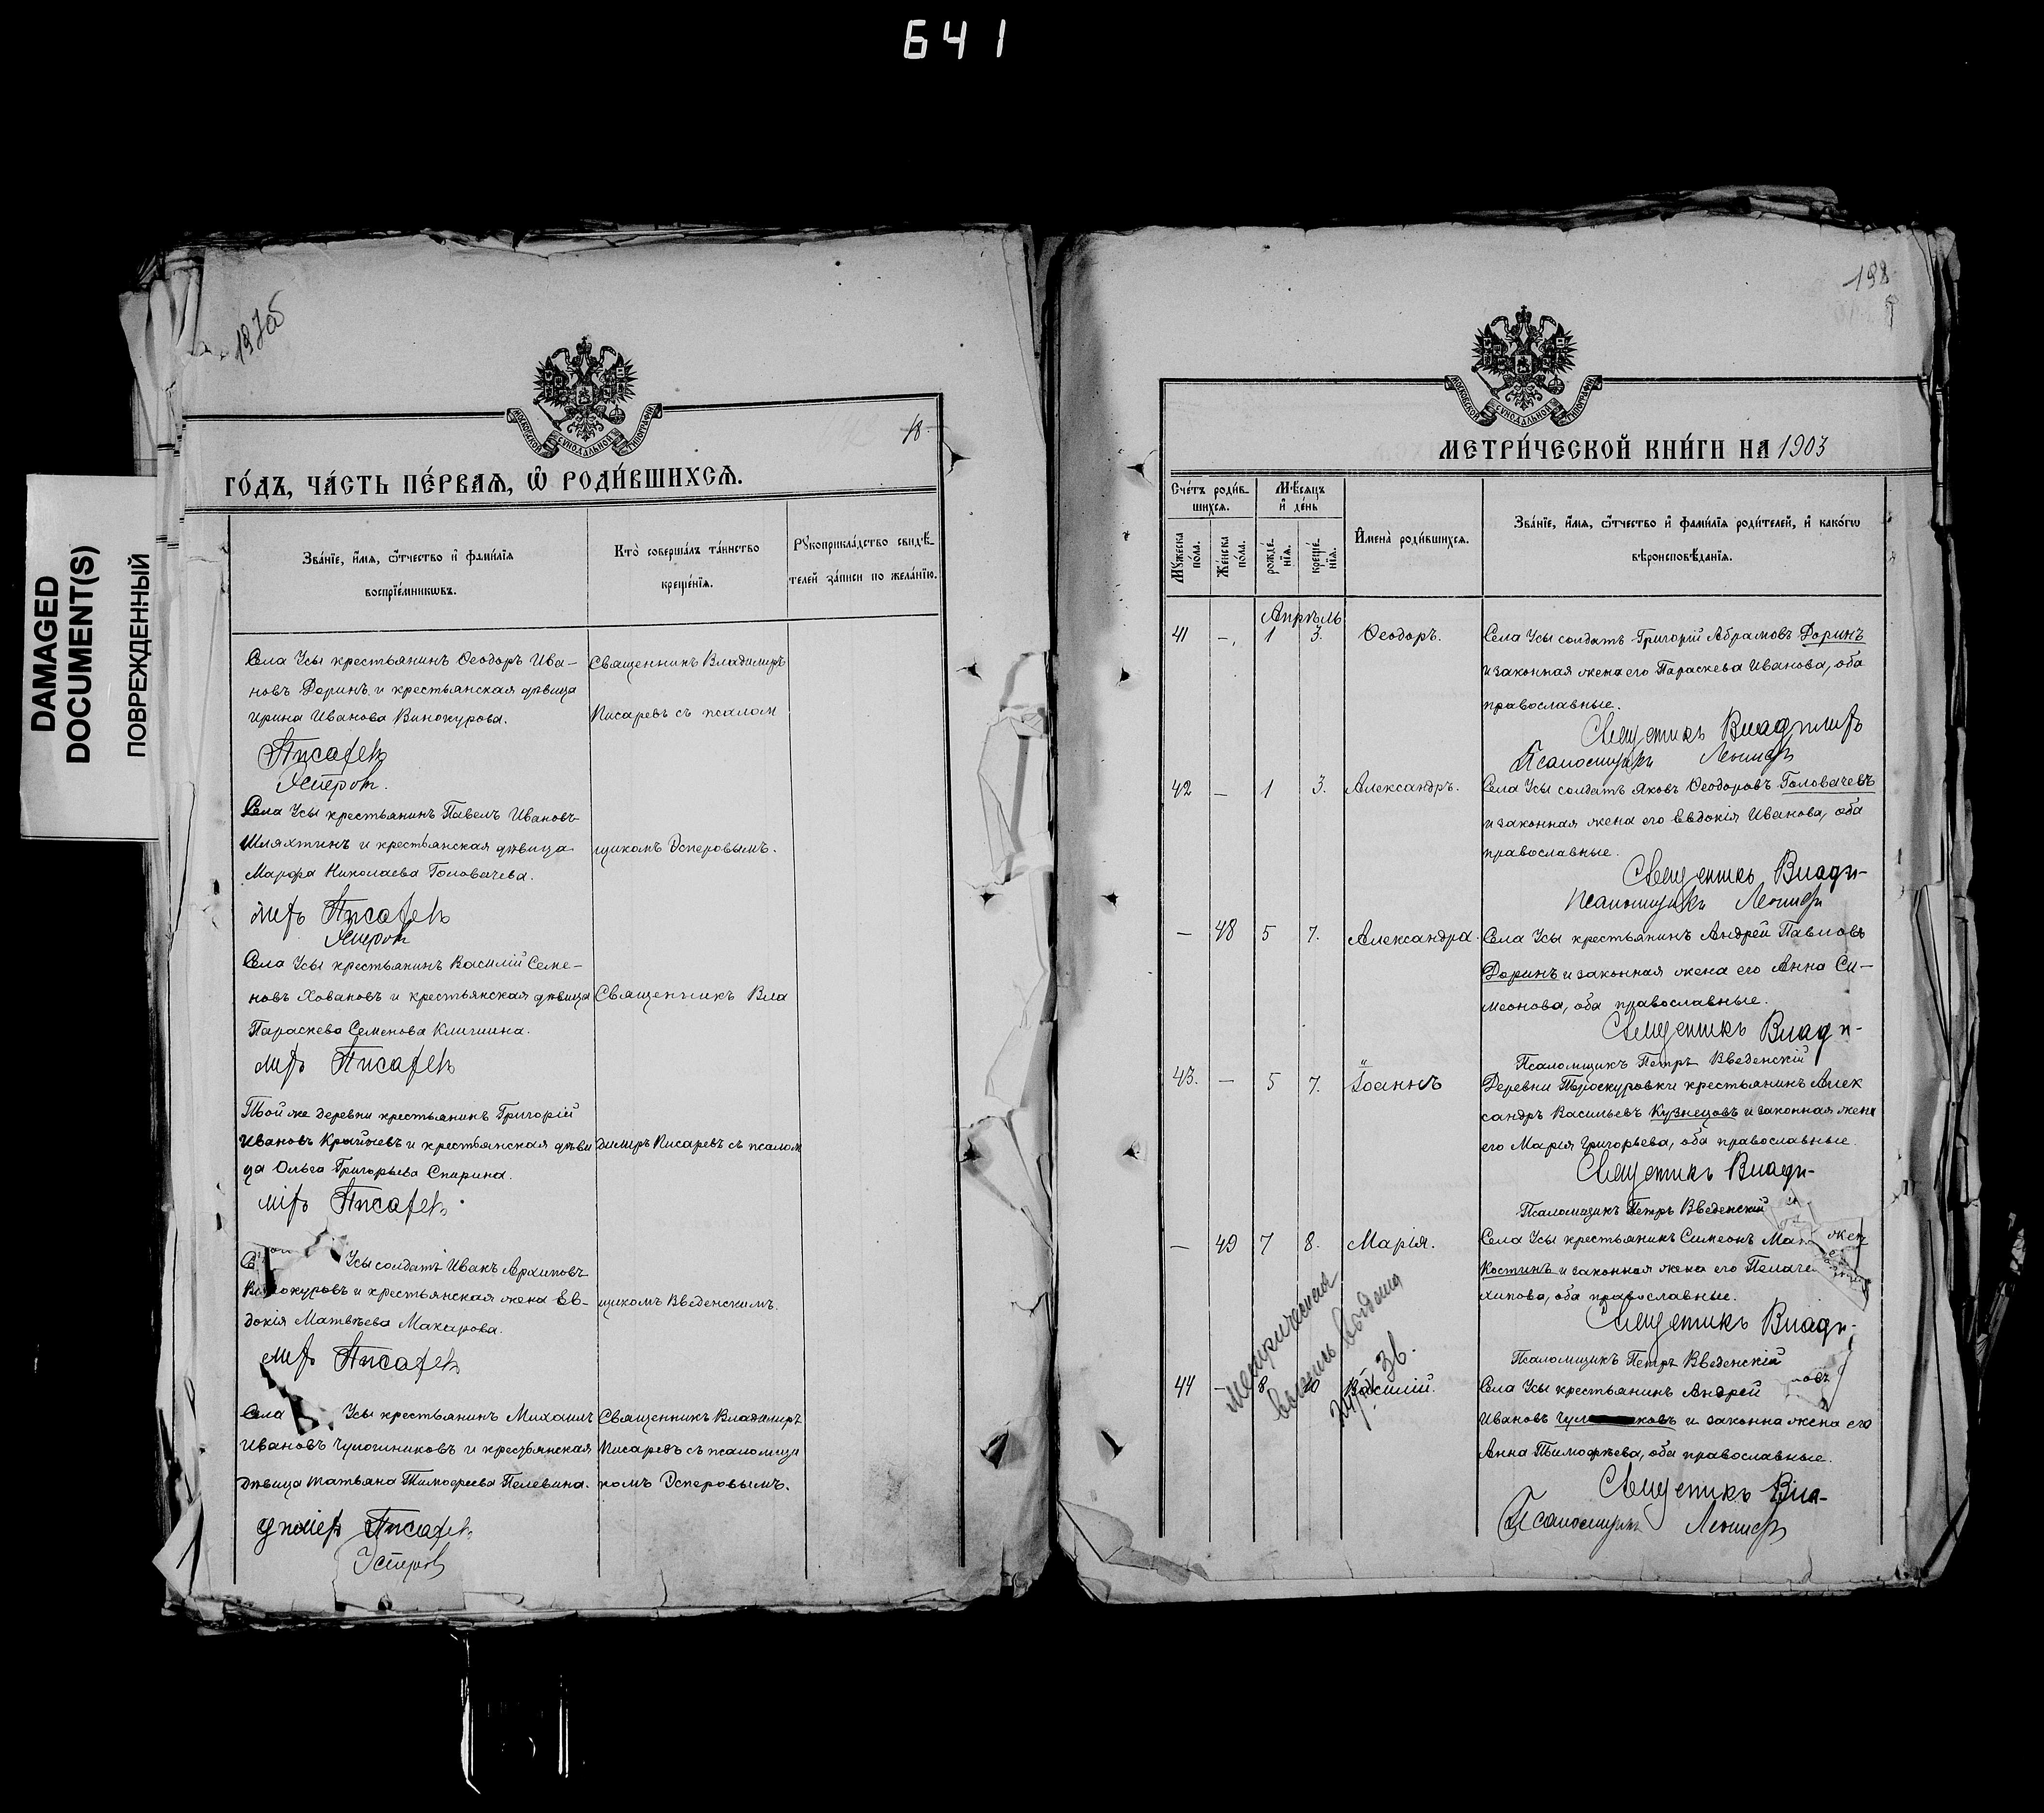 641
DAMAGED
DOCUMENT(S)
ПОВРЕЖДЕННЫЙ
197об
18
МОСКОВСКОЙ СѴНОДАЛЬНОЙ ТИПОГРАФІИ
ГО́ДЪ, ЧА́СТЬ ПЕ́РВАѦ, Ѡ҆ РОДИ́ВШИХСѦ.
Зва́нїе, и҆́мѧ, ѻ҆́тчество и҆ фами́лїѧ
воспрїе́мникѡвъ.
Кто̀ соверша́лъ та́инство
креще́нїѧ.
Рꙋкоприкла́дство свидѣ́-
телей за́писи по жела́нїю.
Села Усы крестьянинъ Ѳеодоръ Ива-
новъ Доринъ и крестьянская дѣвица
Ирина Иванова Винокурова.
Священникъ Владимиръ
Писаревъ съ псалом
Писаревъ
Эсперовъ.
Села Усы крестьянинъ Павелъ Ивановъ
Шляхтинъ и крестьянская дѣвица
Марѳа Николаева Головачева.
щикомъ Эсперовымъ.
миръ Писаревъ
Эсперовъ
Села Усы крестьянинъ Василій Семе-
новъ Ховановъ и крестьянская дѣвица
Параскева Семенова
Священникъ Вла
миръ Писаревъ
Той же деревни крестьянинъ Григорій
Ивановъ и крестьянская дѣви
ца Ольга Григорьева Спирина.
димиръ Писаревъ съ псалом
миръ Писаревъ
Усы солдатъ Иванъ Архиповъ
и крестьянская жена Ев-
докія Матвѣева Макарова.
щикомъ Введенскимъ.
миръ Писаревъ
Села Усы крестьянинъ Михаилъ
Ивановъ Чулошниковъ и крестьянская
дѣвица Татьяна Тимоѳеева Пелевина.
Священникъ Владимиръ
Писаревъ съ псаломщи
комъ Эсперовымъ.
димиръ Писаревъ
Эсперовъ
198
МОСКОВСКОЙ СѴНОДАЛЬНОЙ ТИПОГРАФІИ
МЕТРИ́ЧЕСКОЙ КНИ́ГИ НА 1903
Сче́тъ роди́в-
шихсѧ.
Мꙋ́жеска по́ла.
Же́нска по́ла.
Мѣ́сѧцъ
и҆ де́нь
рожде́нїѧ.
креще́нїѧ.
И҆мена̀ роди́вшихсѧ.
Зва́нїе, и҆́мѧ, ѻ҆́тчество и҆ фами́лїѧ роди́телей, и҆ како́гѡ
вѣроисповѣ́данїѧ.
Апрѣль
41 - 1 3. Ѳеодоръ. Села Усы солдатъ Григорій Абрамовъ Доринъ
и законная жена его Параскева Иванова, оба
православные.
Священникъ Владимиръ
Псаломщикъ Леонидъ
42 - 1 3. Александръ. Села Усы солдатъ Яковъ Ѳеодоровъ Головачевъ
и законная жена его Евдокія Иванова, оба
православные.
Священникъ Влади-
Псаломщикъ Леонидъ
- 48 5 7. Александра. Села Усы крестьянинъ Андрей Павловъ
Доринъ и законная жена его Анна Си-
меонова, оба православные.
Священникъ Влади-
Псаломщикъ Петръ Введенскій
43. - 5 7. Іоаннъ Деревни Проскуровки крестьянинъ Алек
сандръ Васильевъ Кузнецовъ и законная жена
его Марія Григорьева, оба православные.
Священникъ Влади-
Псаломщикъ Петръ Введенскій
- 49 7 8. Марія. Села Усы крестьянинъ Симеонъ
Костинъ и законная жена его
хипова, оба православные.
Священникъ Влади-
Псаломщикъ Петръ Введенскій
метрическая
выпись выдана
44 - 8 Василій. Села Усы крестьянинъ Андрей
Ивановъ и законна жена его
Анна Тимоѳѣева, оба православные.
Священникъ Вла-
Псаломщикъ Леонидъ